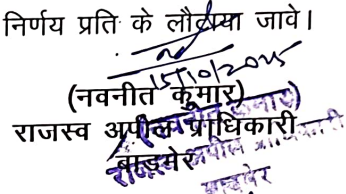 निर्णय प्रति के लौटाया जावे।
15/10/2025
(नवनीत कुमार)
राजस्व अपील प्राधिकारी
बाड़मेर
(नवनीत कुमार)
राजस्व अपील प्राधिकारी
बाड़मेर